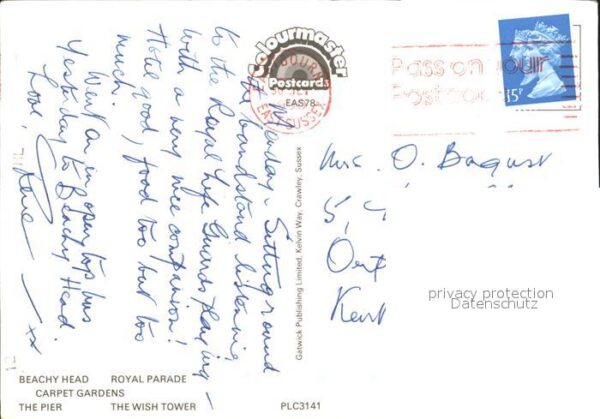 Colourmaster
Postcards
EAS78
EASTBOURNE
EAST SUSSEX
Pass on your
Postcode
15P
Monday - Sitting round
the bandstand listening
to the Royal Life Guards playing -
with a very nice companion!
Hotel good, food too but too
much!
Went on an open top bus
Yesterday to Beachy Head.
Love,
xx
Mrs. O. Bagust
5,
Kent
privacy protection
Datenschutz
Gatwick Publishing Limited, Kelvin Way, Crawley, Sussex
BEACHY HEAD ROYAL PARADE
CARPET GARDENS
THE PIER THE WISH TOWER
PLC3141